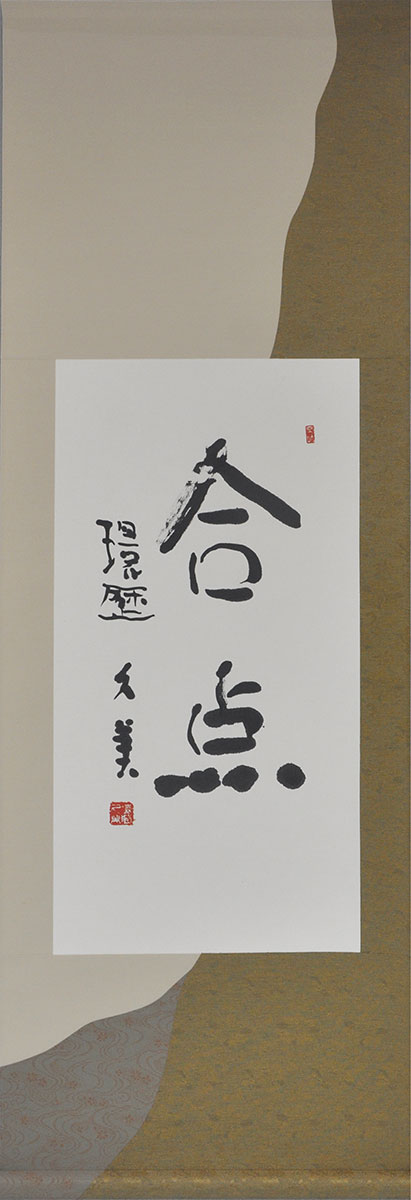 合点
環歴 久美